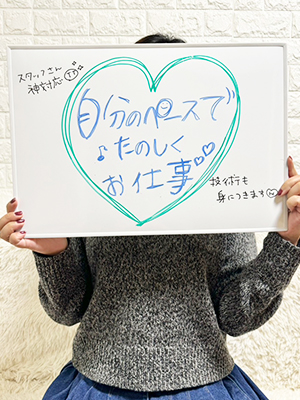 スタッフさん
神対応
自分のペースで
♪たのしく
お仕事♡♡
技術も
身につきます